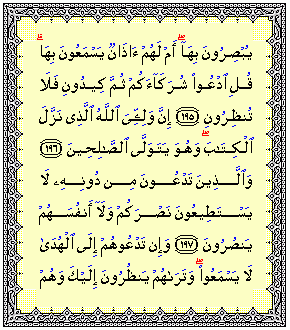 يُبْصِرُونَ بِهَآۖ أَمْ لَهُمْ ءَاذَانٌ يَسْمَعُونَ بِهَاۗ
قُلِ ٱدْعُوا۟ شُرَكَآءَكُمْ ثُمَّ كِيدُونِ فَلَا
تُنظِرُونِ ﴿١٩٥﴾ إِنَّ وَلِـِّۧىَ ٱللَّهُ ٱلَّذِى نَزَّلَ
ٱلْكِتَٰبَۖ وَهُوَ يَتَوَلَّى ٱلصَّٰلِحِينَ ﴿١٩٦﴾
وَٱلَّذِينَ تَدْعُونَ مِن دُونِهِۦ لَا
يَسْتَطِيعُونَ نَصْرَكُمْ وَلَآ أَنفُسَهُمْ
يَنصُرُونَ ﴿١٩٧﴾ وَإِن تَدْعُوهُمْ إِلَى ٱلْهُدَىٰ
لَا يَسْمَعُوا۟ۖ وَتَرَىٰهُمْ يَنظُرُونَ إِلَيْكَ وَهُمْ